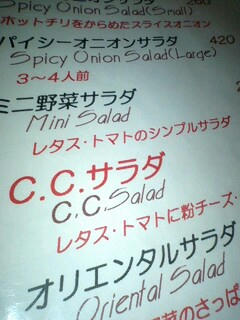 Spicy Onion Salad(Small)
ホットチリをからめたスライスオニオン
パイシーオニオンサラダ 420
Spicy Onion Salad(Large)
3〜4人前
ミニ野菜サラダ
Mini Salad
レタス・トマトのシンプルサラダ
C.C.サラダ
C.C.Salad
レタス・トマトに粉チーズ・
オリエンタルサラダ
Oriental Salad
菜のさっぱ